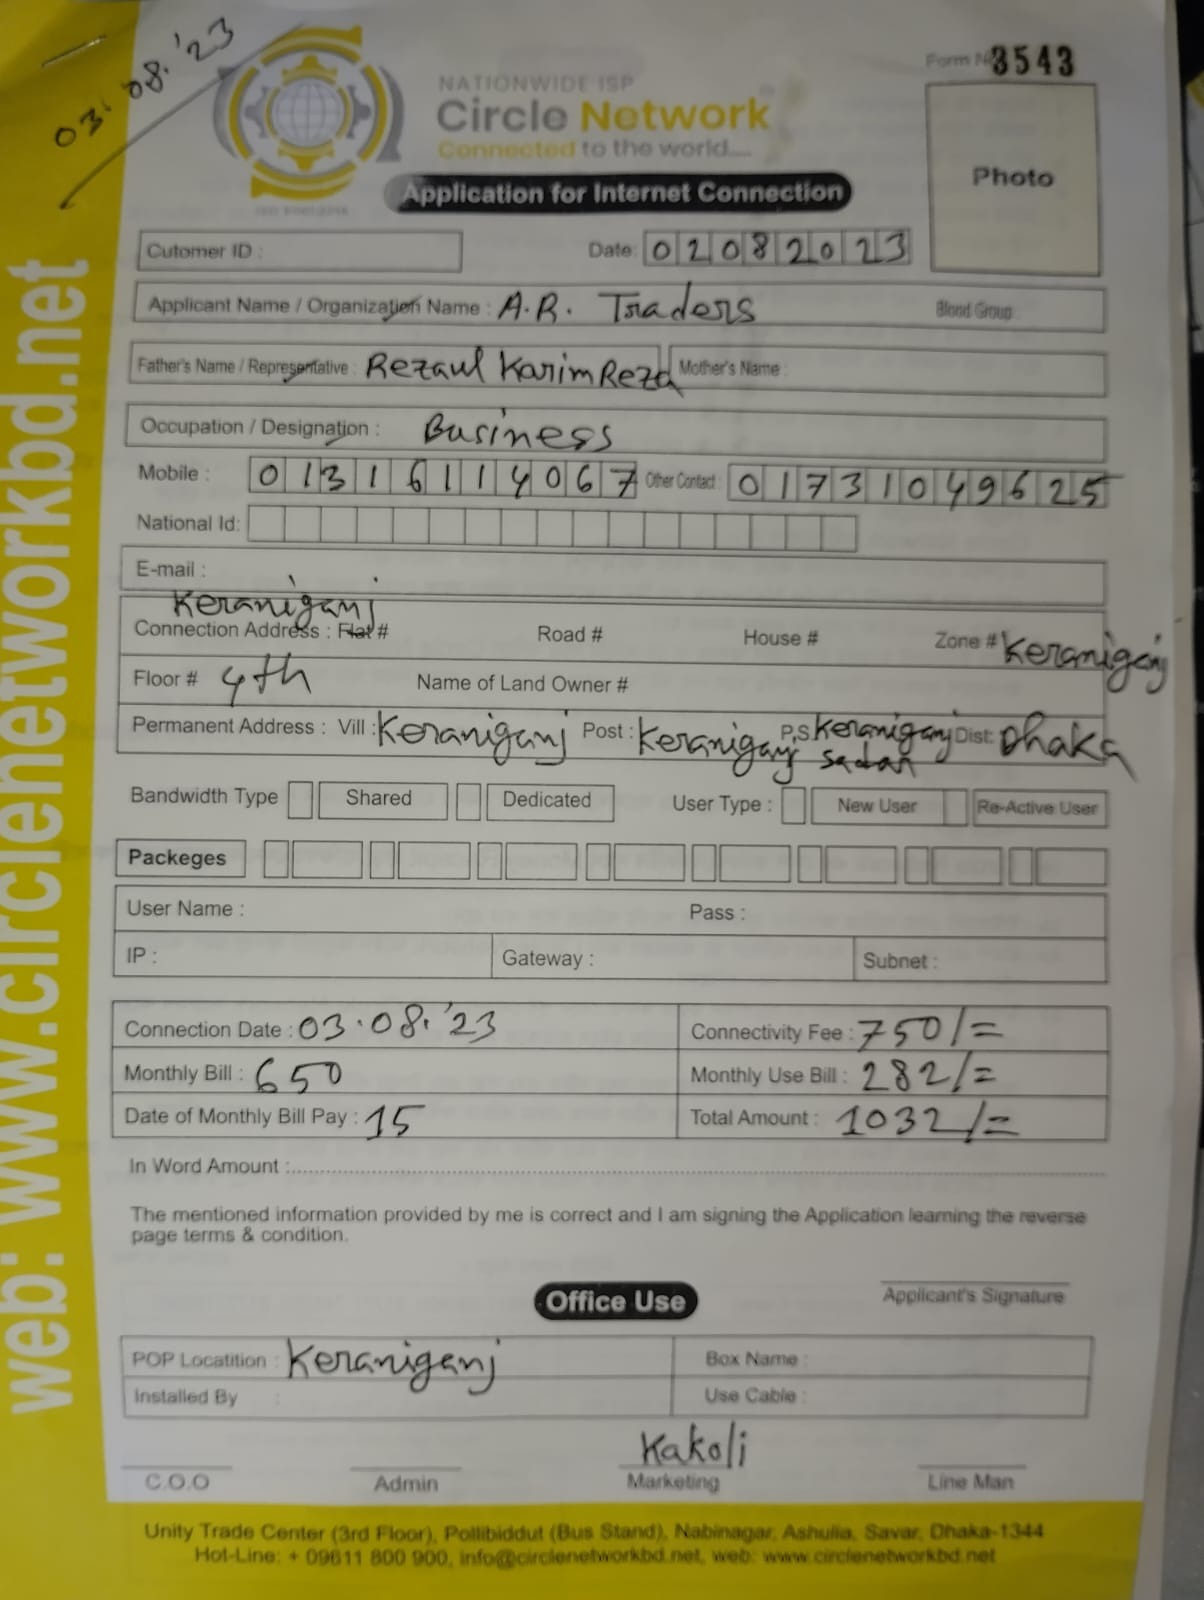 03.08.'23
Form No 3543
NATIONWIDE ISP
Circle Network
Connected to the world....
Photo
Application for Internet Connection
Cutomer ID :
Date: 02082023
Applicant Name / Organization Name : A.R. Traders Blood Group
Father's Name / Representative : Rezaul Karim Reza Mother's Name :
Occupation / Designation : Business
Mobile : 01316114067 Other Contact : 01731049625
National Id:
E-mail :
Keraniganj
Connection Address : Flat # Road # House # Zone # Keraniganj
Floor # 4th Name of Land Owner #
Permanent Address : Vill : Keraniganj Post : Keraniganj P,S Keraniganj Dist: Dhaka
sadar
Bandwidth Type Shared Dedicated User Type : New User Re-Active User
Packeges
User Name : Pass :
IP : Gateway : Subnet :
Connection Date : 03.08.'23 Connectivity Fee : 750/=
Monthly Bill : 650 Monthly Use Bill : 282/=
Date of Monthly Bill Pay : 15 Total Amount : 1032/=
In Word Amount :
The mentioned information provided by me is correct and I am signing the Application learning the reverse
page terms & condition.
Applicant's Signature
Office Use
POP Locatition : Keraniganj Box Name :
Installed By : Use Cable :
Kakoli
C.O.O Admin Marketing Line Man
Unity Trade Center (3rd Floor), Pollibiddut (Bus Stand), Nabinagar, Ashulia, Savar, Dhaka-1344
Hot-Line: + 09611 800 900, info@circlenetworkbd.net, web: www.circlenetworkbd.net
web: www.circlenetworkbd.net